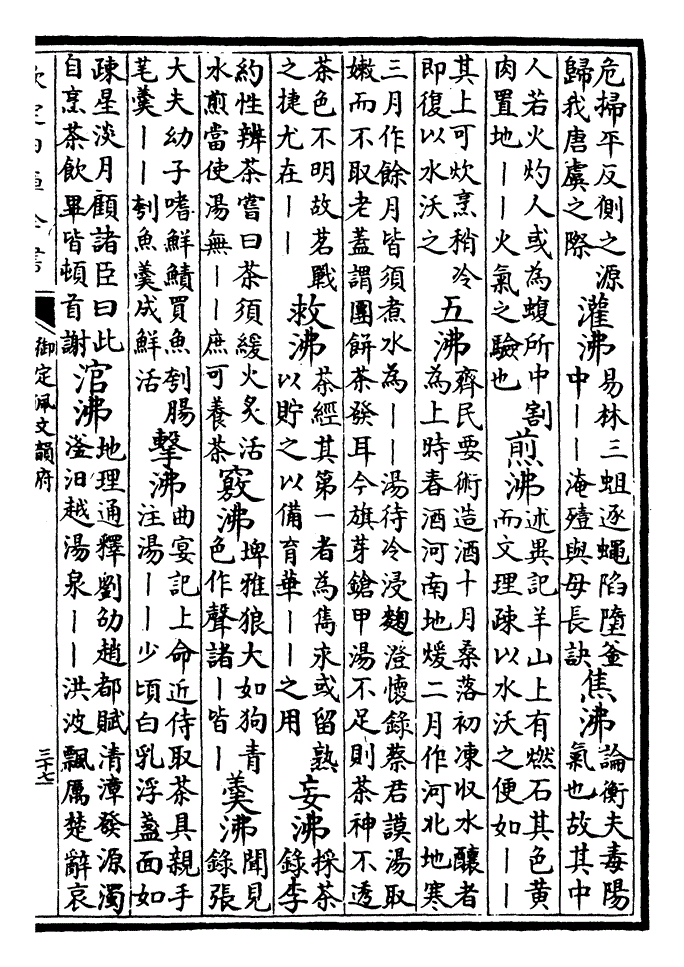 危掃平反側之源
歸我唐虞之際
灌沸
易林三蛆逐蠅陷墮釜
中丨丨淹殪與母長訣
焦沸
論衡夫毒陽
氣也故其中
人若火灼人或為蝮所中割
肉置地丨丨火氣之驗也
煎沸
述異記羊山上有燃石其色黄
而文理疎以水沃之便如丨丨
其上可炊烹稍冷
即復以水沃之
五沸
齊民要術造酒十月桑落初凍收水釀者
為上時春酒河南地煖二月作河北地寒
三月作餘月皆須煮水為丨丨湯待冷浸麴澄懷錄蔡君謨湯取
嫩而不取老蓋謂團餅茶發耳今旗芽鎗甲湯不足則茶神不透
茶色不明故茗戰
之捷尤在丨丨
救沸
茶經其第一者為雋求或留熟
以貯之以備育華丨丨之用
妄沸
採茶
錄李
約性辨茶嘗曰茶須緩火炙活
水煎當使湯無丨丨庶可養茶
竅沸
埤雅狼大如狗青
色作聲諸丨皆丨
羹沸
聞見
錄張
大夫幼子嗜鮮鯖買魚刳腸
芼羹丨丨刳魚羹成鮮活
擊沸
曲宴記上命近侍取茶具親手
注湯丨丨少頃白乳浮盞面如
疎星淡月顧諸臣曰此
自烹茶飲畢皆頓首謝
涫沸
地理通釋劉劭趙都賦清漳發源濁
滏汨越湯泉丨丨洪波飄厲楚辭哀
欽定四庫全書
御定佩文韻府
三十七